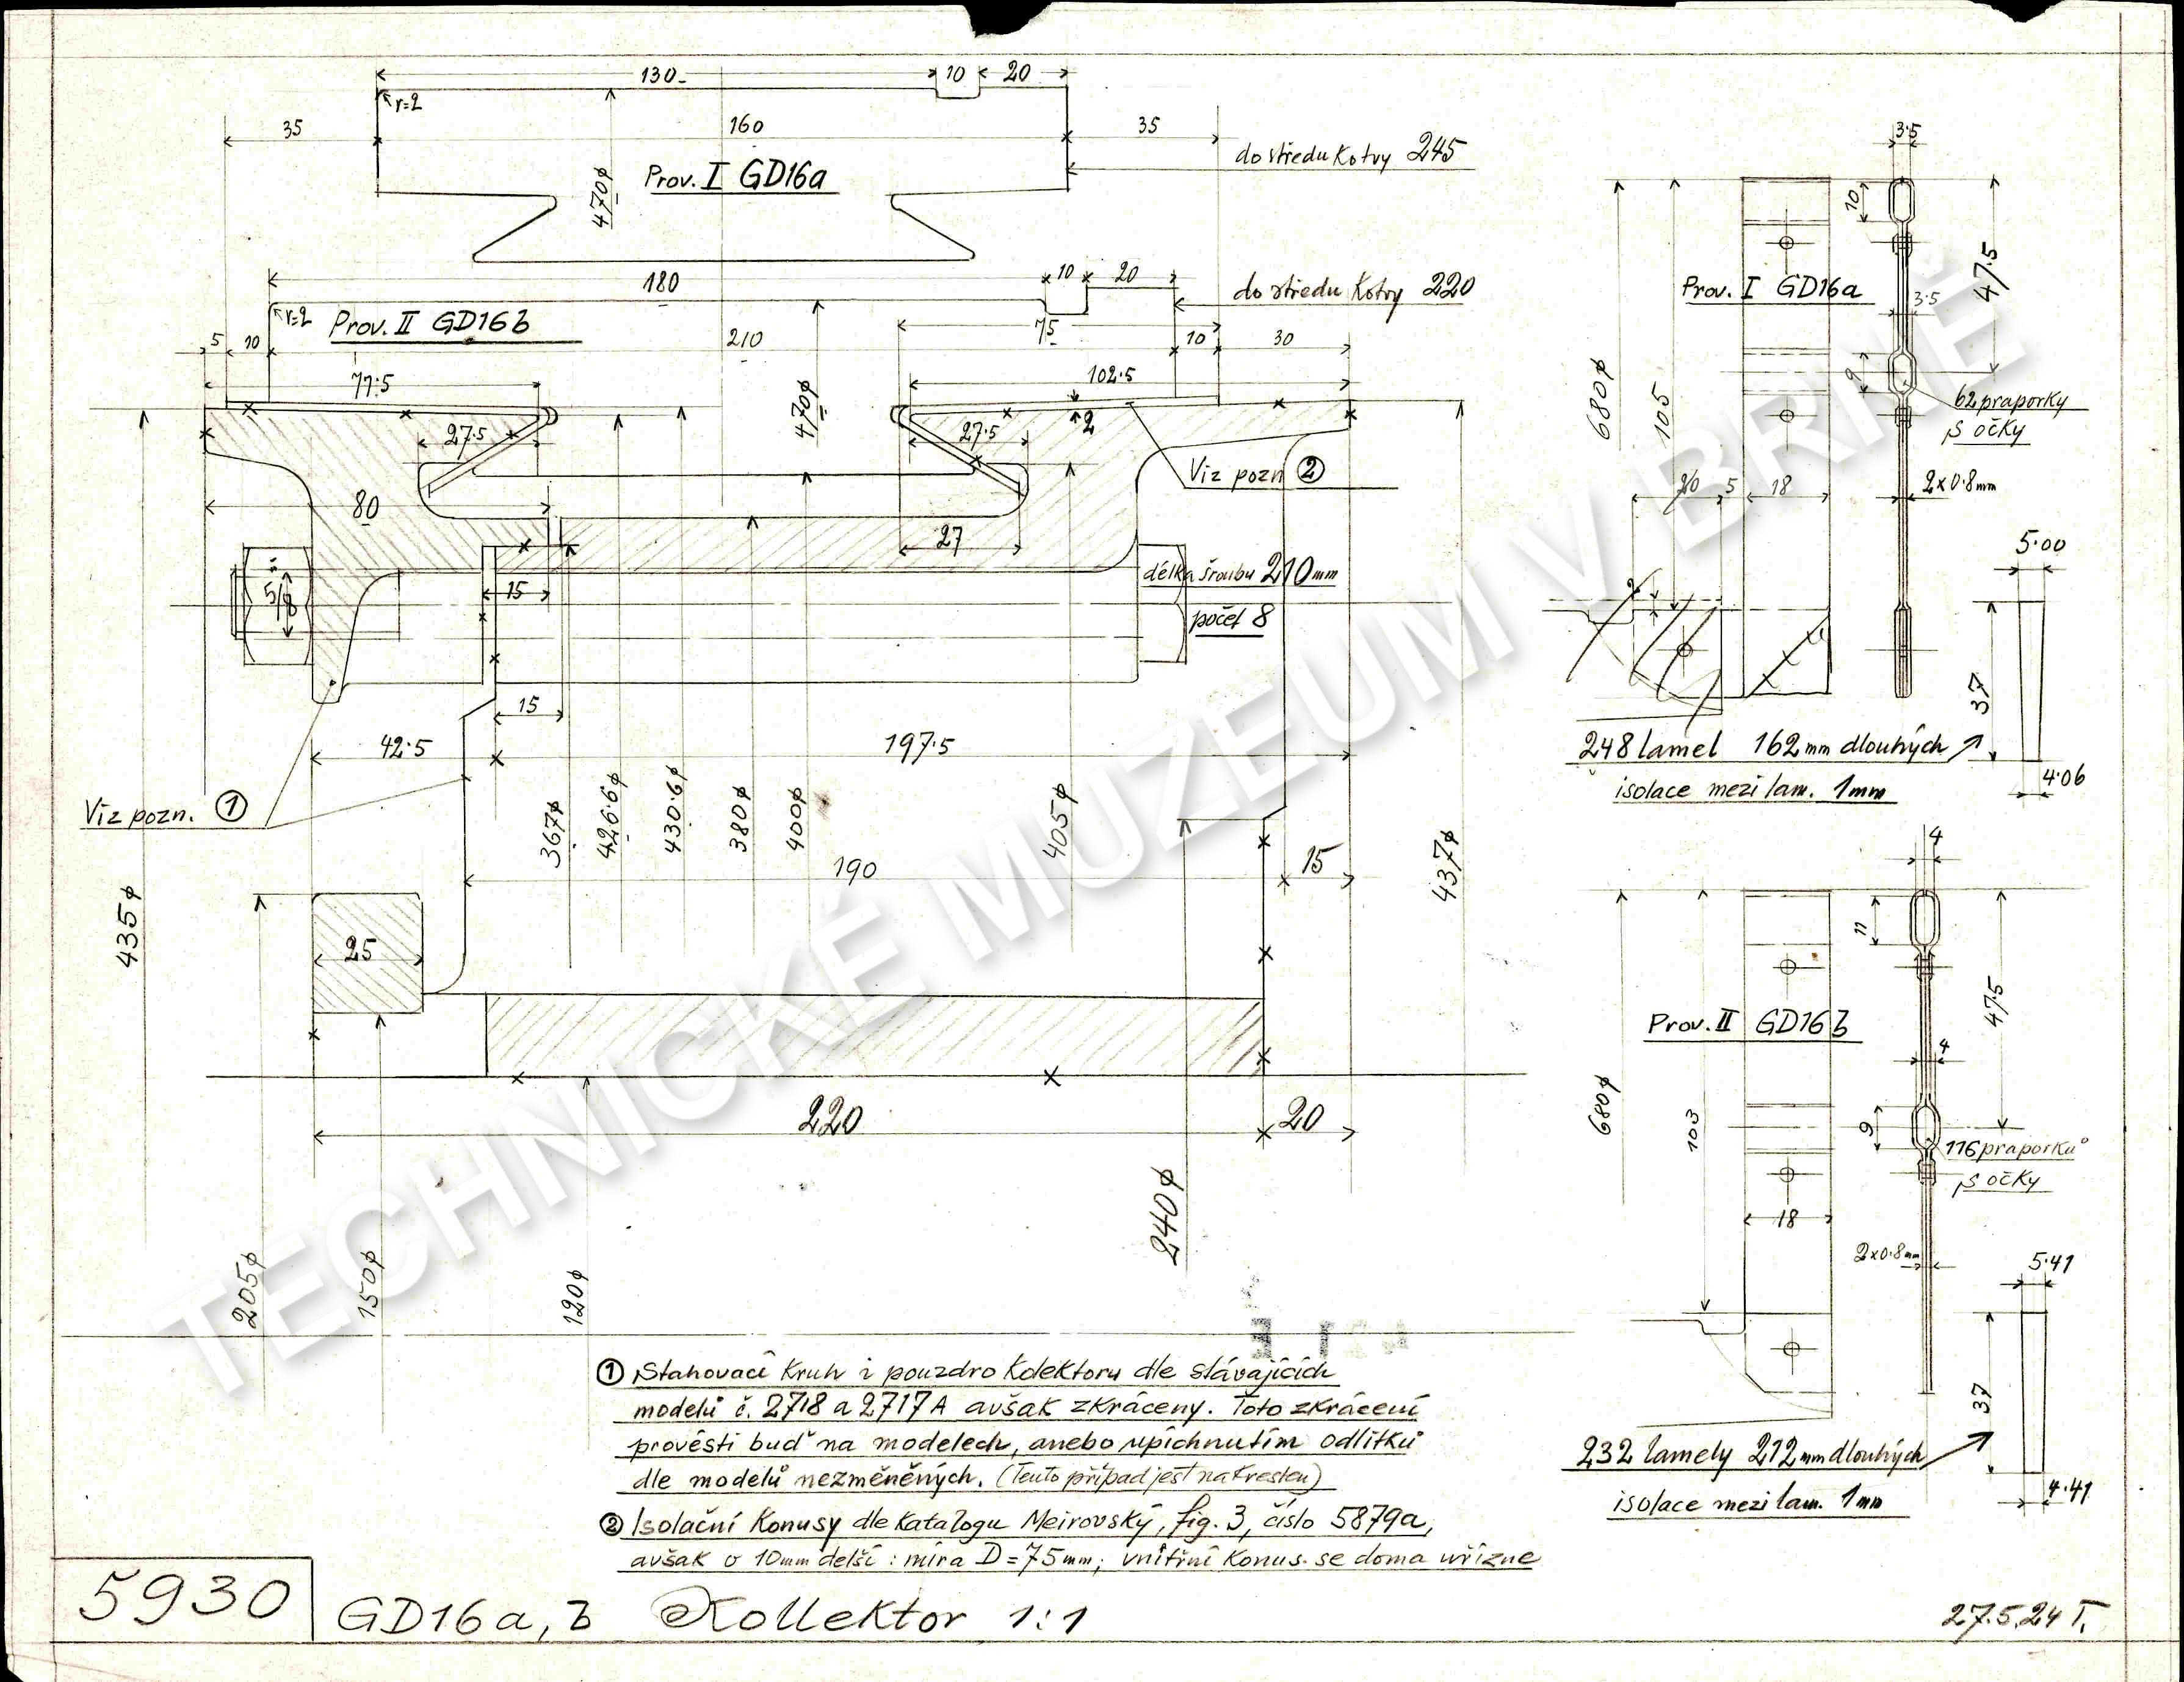 130
10
20
r=2
35
160
35
do středu Kotvy 245
Prov. I GD16a
470φ
180
10
20
do středu Kotvy 220
r=2
Prov. II GD16b
75
5
10
210
10
30
77·5
102·5
470φ
2
27·5
27·5
Viz pozn ②
80
27
5/8"
15
délka šroubu 210mm
počet 8
15
42·5
197·5
Viz pozn. ①
367φ
426·6φ
430·6φ
380φ
400φ
405φ
437φ
190
15
435φ
25
220
20
240φ
205φ
150φ
120φ
3·5
10
47·5
Prov. I GD16a
3·5
680φ
105
9
62 praporky
s očky
20
5
18
2×0·8mm
5·00
2
37
248 lamel 162mm dlouhých
isolace mezi lam. 1mm
4·06
4
11
47·5
Prov. II GD16b
4
680φ
103
9
116 praporků
s očky
18
2×0·8mm
5·41
37
232 lamely 212mm dlouhých
isolace mezi lam. 1mm
4·41
① Stahovací Kruh i pouzdro Kolektoru dle stávajících
modelů č. 2718 a 2717A avšak zkráceny. Toto zkrácení
provésti buď na modelech, anebo upíchnutím odlitků
dle modelů nezměněných. (Tento případ jest nakreslen)
② Isolační Konusy dle Katalogu Meirovský, fig. 3, číslo 5879a,
avšak o 10mm delší: míra D=75mm; vnitřní Konus. se doma uřízne
5930
GD16a, b Kollektor 1:1
27.5.24 T.
TECHNICKÉ MUZEUM V BRNĚ